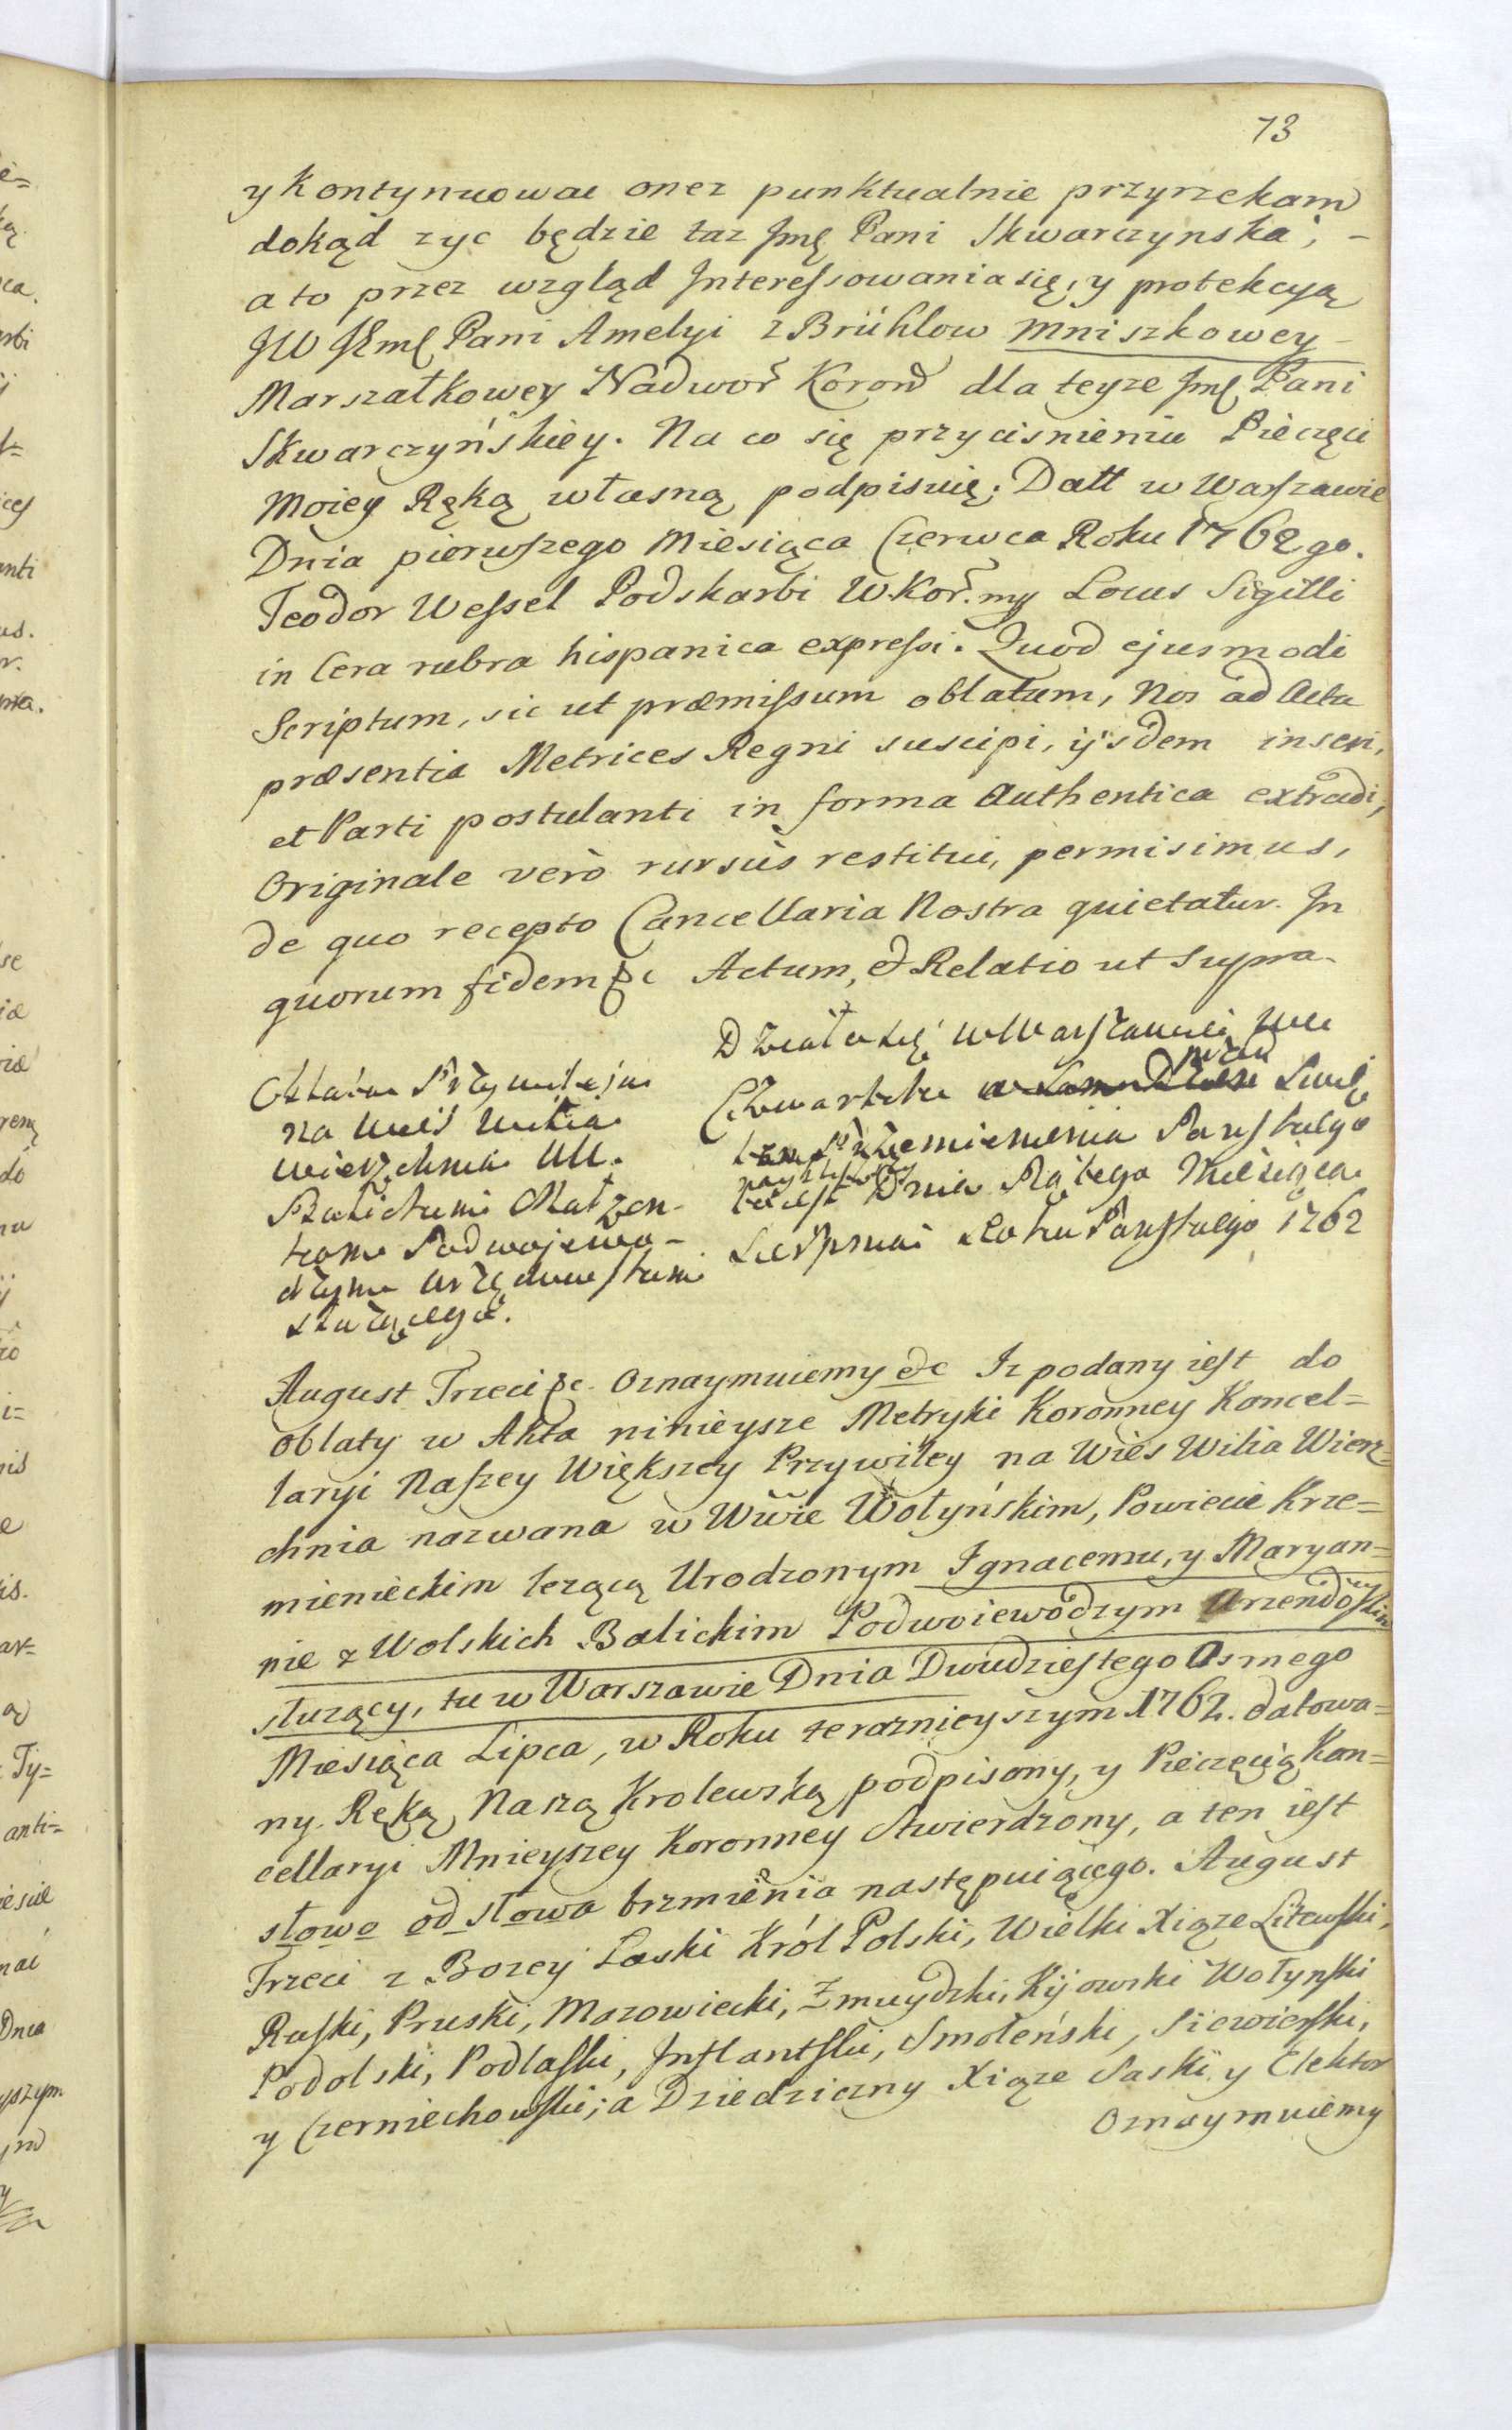 73
y Kontynuowac onez punktualnie przyrzekam
dokąd zyc będzie taz Jmę Pani Skwarczynska, -
a to przez wzgląd Interessowania się, y protekcyą
JW JEmę Pani Amelyi z Brühlow Mniszkowey -
Marszałkowey Nadwor Koron dla teyze Jmę Pani
Skwarczyńskiey. Na co się przy cisnieniu Pieczęci
moiey Ręką własną podpisuię. Datt w Warszawie
Dnia pierwszego Miesiąca Czerwca Roku 1762go.
Teodor Wessel Podskarbi W.Kor. mp Locus Sigilli
in Cera rubra hispanica expressi. Quod ejusmodi
Scriptum, sic ut præmissum oblatum, Nos ad Acta
præsentia Metrices Regni suscipi, ijsdem inseri,
et Parti postulanti in forma Authentica extradi,
Originale verò rursùs restitui, permisimus,
de quo recepto Cancellaria Nostra quietatur. In
quorum fidem &c Actum, & Relatio ut supra.
Oblata Przywileju
na Wieś Wilia
Wierzchnia UU.
Balickim Małżon-
kom Podwojewo-
dzym
służącego.
Działo się w Warszawie we
Czwartek przed Swię
tem Przemienienia Pańskiego
to iest Dnia Piątego Miesiąca
Sierpnia Roku Pańskiego 1762
August Trzeci &c. Oznaymuiemy &c Iz podany iest do
Oblaty w Akta ninieysze Metryki Koronney Kancel=
laryi Naszey Większey Przywiley na Wies Wilia Wierz=
chnia nazwana w Wwie Wołyńskim, Powiecie Krze=
mienieckim lezącą Urodzonym Ignacemu, y Maryan=
nie z Wolskich Balickim Podwoiewodzym Arzendowskim
służący, tu w Warszawie Dnia Dwudziestego Osmego
Miesiąca Lipca, w Roku teraznieyszym 1762. datowa=
ny. Ręką Naszą Krolewską podpisany, y Pieczęcią Kan=
cellaryi Mnieyszey Koronney stwierdzony, a ten iest
słowo od słowa brzmienia następuiącego. August
Trzeci z Bozey Łaski Król Polski, Wielki Xiąze Litewski,
Ruski, Pruski, Mazowiecki, Zmuydzki, Kijowski Wołynski
Podolski, Podlaski, Inflantski, Smoleński, Siewierski,
y Czerniechowski; a Dziedziczny Xiąze Saski y Elektor
Oznaymuiemy